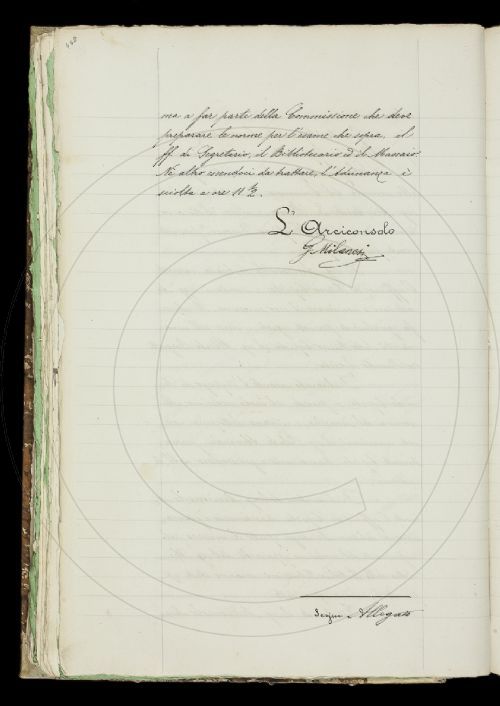 448
na a far parte della Commissione che deve
preparare le norme per l'esame che sopra, il
ff. di Segretario, il Bibliotecario ed il Massaio.
Nè altro essendoci da trattare, l'Adunanza è
sciolta a ore 11 1/2.
L'Arciconsolo
G. Milanesi
Segue Allegato